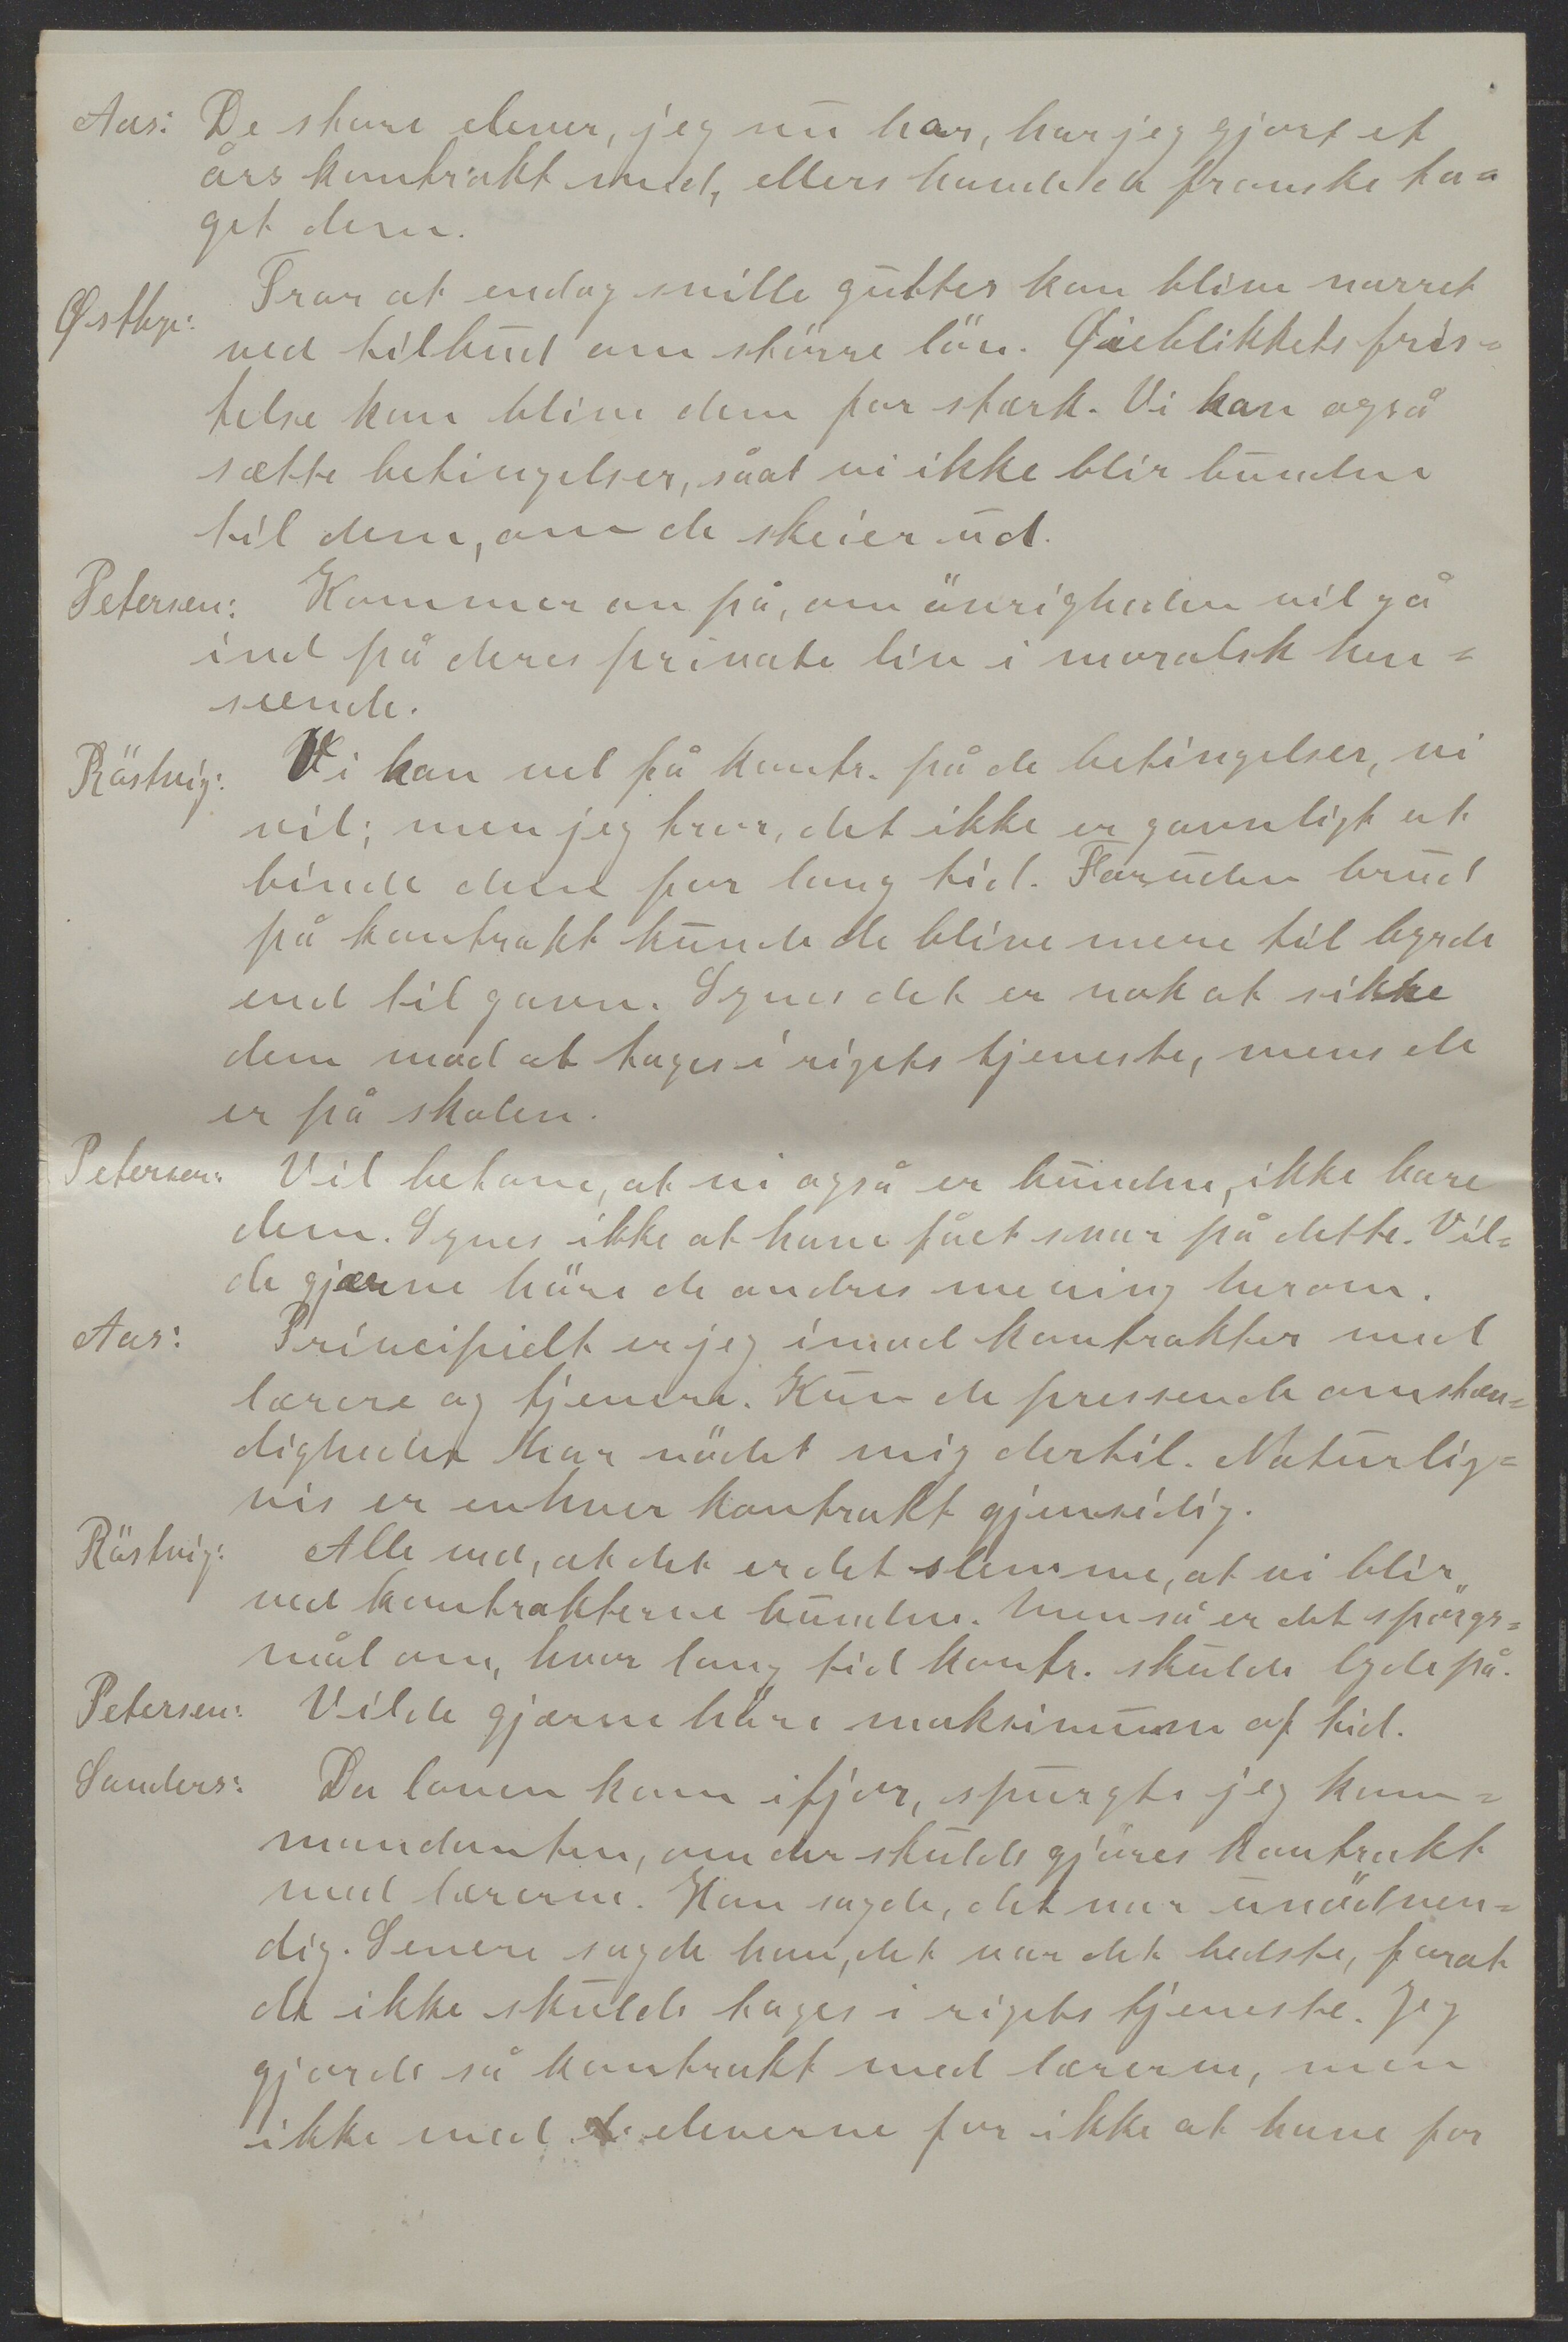 Aas: De store elever, jeg nu har, har jeg gjort et
års kontrakt med, ellers havde de franske ta=
get dem.
Østbye: Tror at endog snille gutter kan blive narret
ved tilbud om större lön. Øieblikkets fris=
telse kan blive dem for stærk. Vi kan også
sætte betingelser, såat vi ikke blir bundne
til dem, om de skeier ud.
Petersen: Kommer an på, om övrigheden vil gå
ind på deres private liv i moralsk hen=
seende.
Röstvig: Vi kan vel få kontr. på de betingelser, vi
vil; men jeg tror, det ikke er gavnligt at
binde dem for lang tid. Foruden brud
på kontrakt kunde de blive mere til byrde
end til gavn. Synes det er nok at sikke
dem mod at tages i rigets tjeneste, mens de
er på skolen.
Petersen: Vil betone, at vi også er bundne, ikke bare
dem. Synes ikke at have fået svar på dette. Vil=
de gjærne höre de andres mening herom.
Aas: Principielt er jeg imod kontrakter med
lærere og tjenere. Kun de pressende omstæn=
digheder har nödet mig dertil. Naturlig=
vis er enhver kontrakt gjensidig.
Röstvig: Alle ved, at det er det slemme, at vi blir
ved kontrakterne bundne. Men så er det spörgs=
mål om, hvor lang tid kontr. skulde lyde på.
Petersen: Vilde gjærne höre maksimum af tid.
Sanders: Da loven kom ifjor, spurgte jeg kom=
mandanten, om der skulde gjöres kontrakt
med lærerne. Han sagde, det var unödven=
dig. Senere sagde han, det var det bedste, forat
de ikke skulde tages i rigets tjeneste. Jeg
gjorde så kontrakt med lærerne, men
ikke med eleverne for ikke at have for